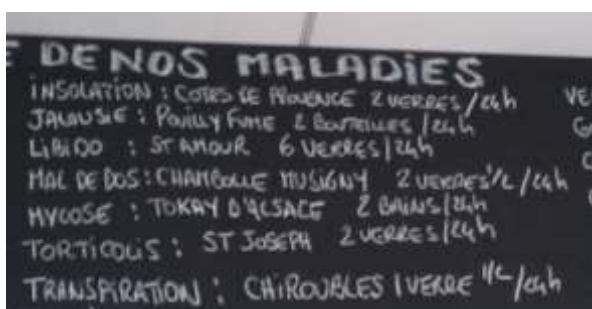 E DE NOS MALADIES
INSOLATION : COTES DE PROVENCE 2 VERRES/24h
JALOUSIE : POUILLY FUME 2 BOUTEILLES/24h
LIBIDO : ST AMOUR 6 VERRES/24h
MAL DE DOS : CHAMBOLLE MUSIGNY 2 VERRES 1/2 /24h
MYCOSE : TOKAY D'ALSACE 2 BAINS/24h
TORTICOLIS : ST JOSEPH 2 VERRES/24h
TRANSPIRATION : CHIROUBLES 1 VERRE 1/2 /24h
VE
G
C